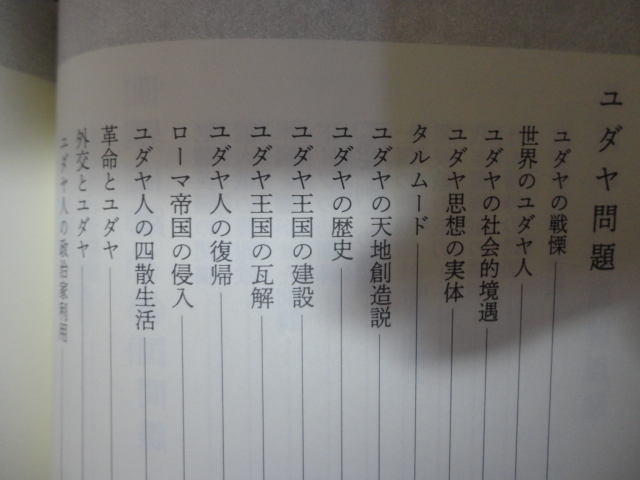 ユダヤ問題
ユダヤの戦慄
世界のユダヤ人
ユダヤの社会的境遇
ユダヤ思想の実体
タルムード
ユダヤの天地創造説
ユダヤの歴史
ユダヤ王国の建設
ユダヤ王国の瓦解
ユダヤ人の復帰
ローマ帝国の侵入
ユダヤ人の四散生活
革命とユダヤ
外交とユダヤ
ユダヤ人の政治家利用